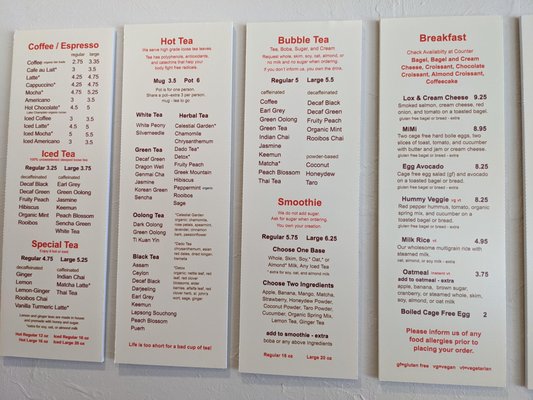 Coffee / Espresso
regular large
Coffee organic fair trade 2.75 3.35
Cafe au Lait* 3 3.5
Latte* 4.25 4.75
Cappuccino* 4.25 4.75
Mocha* 4.75 5.25
Americano 3 3.5
Hot Chocolate* 4.5 5
Iced Coffee 3 3.5
Iced Latte* 4.5 5
Iced Mocha* 5 5.5
Iced Americano 3 3.5
Iced Tea
100% unsweetened steeped loose tea
Regular 3.25 Large 3.75
decaffeinated
Decaf Black
Decaf Green
Fruity Peach
Hibiscus
Organic Mint
Rooibos
caffeinated
Earl Grey
Green Oolong
Jasmine
Keemun
Peach Blossom
Sencha Green
White Tea
Special Tea
Enjoy it hot or iced!
Regular 4.75 Large 5.25
decaffeinated
Ginger
Lemon
Lemon-Ginger
Rooibos Chai
Vanilla Turmeric Latte*
caffeinated
Indian Chai
Matcha Latte*
Thai Tea
Lemon and ginger teas are made in house
and premade with honey and sugar
*extra for soy, oat, or almond milk
Hot Regular 12 oz Iced Regular 16 oz
Hot Large 16 oz Iced Large 20 oz
Hot Tea
We serve high grade loose tea leaves.
Tea has polyphenols, antioxidants,
and catechins that help your
body fight free radicals.
Mug 3.5 Pot 6
Pot is for one person.
Share a pot-extra 2 per person.
mug - tea to go
White Tea
White Peony
Silverneedle
Green Tea
Decaf Green
Dragon Well
Genmai Cha
Jasmine
Korean Green
Sencha
Oolong Tea
Dark Oolong
Green Oolong
Ti Kuan Yin
Black Tea
Assam
Ceylon
Decaf Black
Darjeeling
Earl Grey
Keemun
Lapsong Souchong
Peach Blossom
Puerh
Herbal Tea
Celestial Garden*
Chamomile
Chrysanthemum
Dado Tea*
Detox*
Fruity Peach
Greek Mountain
Hibiscus
Peppermint organic
Rooibos
Sage
*Celestial Garden
organic chamomile,
rose petals, spearmint,
lavender, cinnamon
bark, passionflower
*Dado Tea
chrysanthemum, asian
red dates, dried longan,
berries
*Detox
organic nettle leaf, red
clover, red leaf,
elder berries,
alfalfa leaf, red
clover herb, st. john's
wort, sage, ginger
Life is too short for a bad cup of tea!
Bubble Tea
Tea, Boba, Sugar, and Cream
Request whole, skim, soy, oat, almond, or
no milk and no sugar when ordering.
If you don't inform us, you own the drink.
Regular 5 Large 5.5
caffeinated
Coffee
Earl Grey
Green Oolong
Green Tea
Indian Chai
Jasmine
Keemun
Matcha*
Peach Blossom
Thai Tea
decaffeinated
Decaf Black
Decaf Green
Fruity Peach
Organic Mint
Rooibos Chai
powder-based
Coconut
Honeydew
Taro
Smoothie
We do not add sugar.
Ask for sugar when ordering.
You own your creation.
Regular 5.75 Large 6.25
Choose One Base
Whole, Skim, Soy,* Oat,* or
Almond* Milk, Any Iced Tea
* extra for soy, oat, and almond milk
Choose Two Ingredients
Apple, Banana, Mango, Matcha,
Strawberry, Honeydew Powder,
Coconut Powder, Taro Powder,
Cucumber, Organic Spring Mix,
Lemon Tea, Ginger Tea
add to smoothie - extra
boba or any above ingredients
Regular 16 oz Large 20 oz
Breakfast
Check Availability at Counter
Bagel, Bagel and Cream
Cheese, Croissant, Chocolate
Croissant, Almond Croissant,
Coffeecake
Lox & Cream Cheese 9.25
Smoked salmon, cream cheese, red
onion, and tomato on a toasted bagel.
gluten free bagel or bread - extra
MiMi 8.95
Two cage free hard boiled eggs, two
slices of toast, tomato, and cucumber
with butter and jam or cream cheese.
gluten free bread - extra
Egg Avocado 8.25
Cage free egg salad (gf) and avocado
on a toasted bagel or bread.
gluten free bagel or bread - extra
Hummy Veggie vg vt 8.25
Red pepper hummus, tomato, organic
spring mix, and cucumber on a
toasted bagel or bread.
gluten free bagel or bread - extra
Milk Rice vt 4.95
Our wholesome multigrain rice with
steamed milk.
oat, almond, or soy milk - extra
Oatmeal 3.75
add to oatmeal - extra
apple, banana, brown sugar,
cranberry, or steamed whole, skim,
soy, almond, or oat milk
Boiled Cage Free Egg 2
Please inform us of any
food allergies prior to
placing your order.
gf=gluten free vg=vegan vt=vegetarian